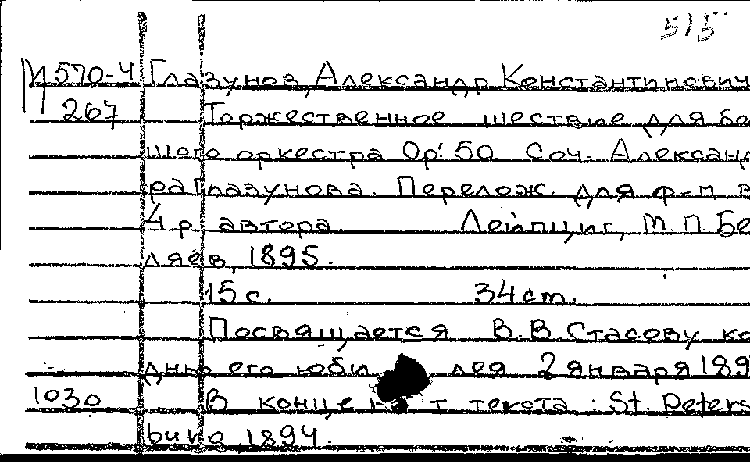 515
М570-4 Глазунов, Александр Константинович
267 Торжественное шествие для бо
шого оркестра Op. 50. Соч. Александ
ра Глазунова. Перелож. для ф-п в
4 р. автора Лейпциг, М.П. Бе
ляев, 1895.
15 с. 34 cm.
Посвящается В.В. Стасову ко
дню его юби лея 2 января 189
1030 В конце н т текста: St. Peters
burg, 1894.